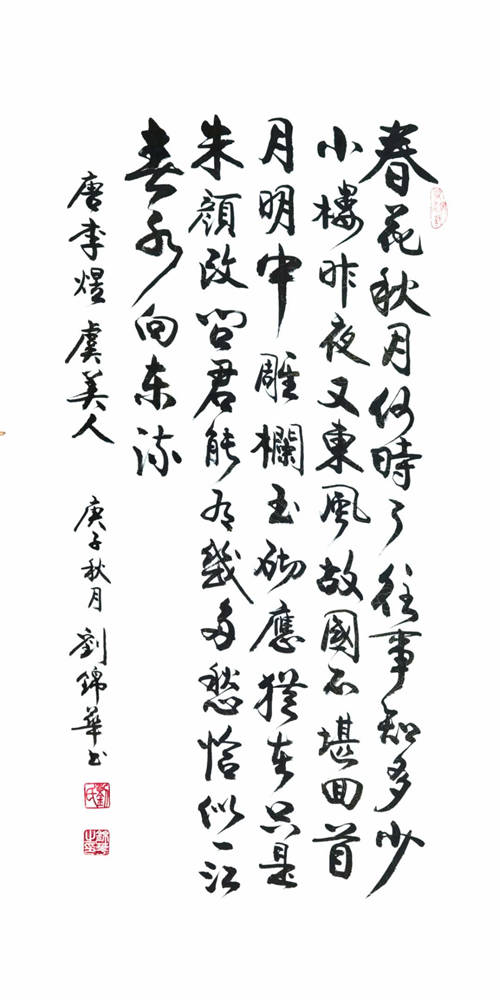 春花秋月何時了往事知多少
小樓昨夜又東風故國不堪回首
月明中雕欄玉砌應猶在只是
朱顏改問君能有幾多愁恰似一江
春水向東流
唐李煜虞美人 庚子秋月劉錦華书